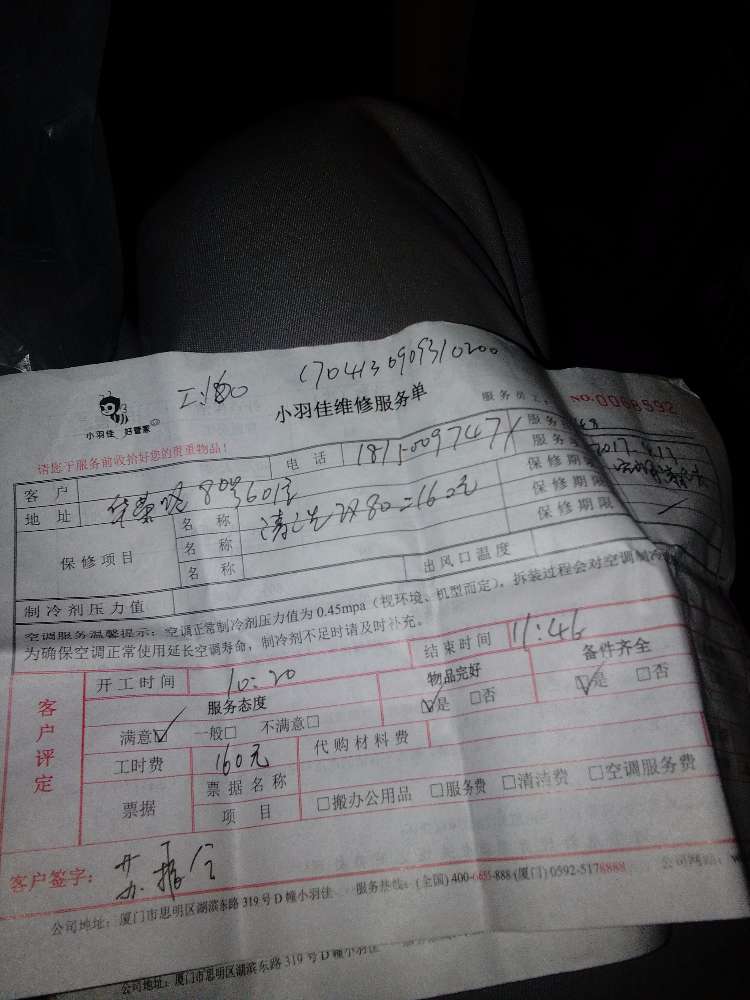 1704130909310200
小羽佳 好管家
小羽佳维修服务单
NO.0068592
请您于服务前收拾好您的贵重物品!
电话
客户
地址 80号601室
保修项目
名称 清洗 2X80=160元
名称
名称
保修期
保修期限
保修期限
制冷剂压力值 出风口温度
空调服务温馨提示:空调正常制冷剂压力值为0.45mpa(视环境、机型而定),拆装过程会对空调制冷
为确保空调正常使用延长空调寿命,制冷剂不足时请及时补充。
客户评定
开工时间 10:20 结束时间 11:46
服务态度 物品完好 备件齐全
满意☑ 一般□ 不满意□ ☑是 □否 ☑是 □否
工时费 160元 代购材料费
票据 票据名称
项目 □搬办公用品 □服务费 □清洁费 □空调服务费
客户签字:
公司地址:厦门市思明区湖滨东路319号D幢小羽佳 服务热线:(全国)400-0655-888(厦门)0592-5178888 公司网站:
公司地址:厦门市思明区湖滨东路319号D幢小羽佳